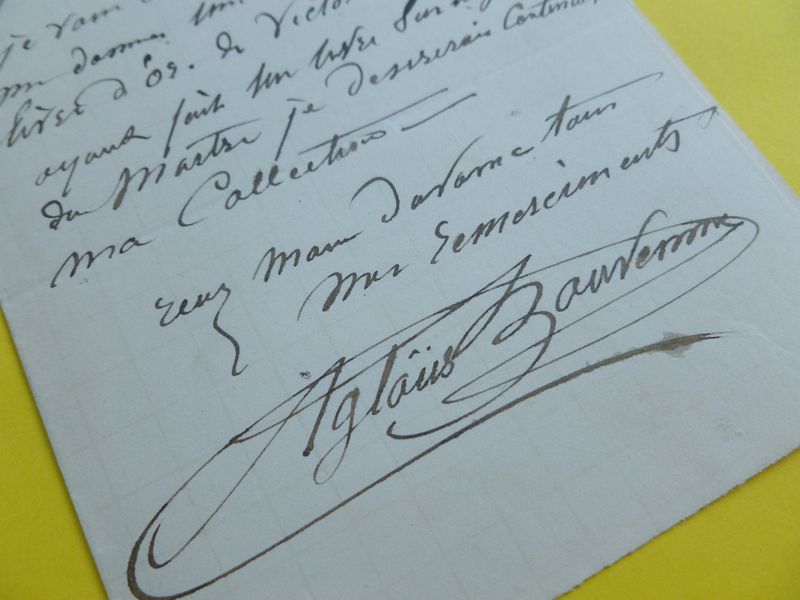 je vous
me donner un
livre d'Or. de Victor
ayant fait un livre sur
du Maître je desirerais Continuer
ma Collection
Recevez davance tous
mes Remerciments
Aglaüs Bouvenne